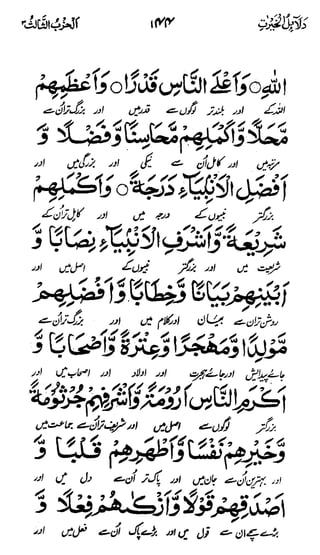 دلائل الخیرات ۱۴۴ اَلْحِزْبُ الثَّالِثُ ۳
اللّٰهِ ○ وَاَعْلَى النَّاسِ قَدْرًا ○ وَاَعْظَمِهِمْ
اللہ کے اور بلند تر لوگوں سے قدر میں اور بزرگ تر اُن سے
مَحَلًّا وَّاَكْمَلِهِمْ مَحَاسِنًا وَّفَضْلًا وَّ
مرتبہ میں اور کامل اُن سے نیکی اور بزرگی میں اور
اَفْضَلِ الْاَنْبِيَاءِ دَرَجَةً ○ وَّاَكْمَلِهِمْ
بزرگتر نبیوں کے درجہ میں اور کامل تر اُن کے
شَرِيْعَةً وَّاَشْرَفِ الْاَنْبِيَاءِ نِصَابًا وَّ
شریعت میں اور بزرگتر نبیوں کے اصل میں اور
اَبْيَنِهِمْ بَيَانًا وَّخِطَابًا وَّاَفْضَلِهِمْ
روشن تر ان سے بیان اور کلام میں اور بزرگ تر اُن سے
مَّوْلِدًا وَّمُهَاجَرًا وَّعِتْرَةً وَّاَصْحَابًا وَّ
جائے پیدائش اور جائے ہجرت اور اولاد اور اصحاب میں اور
اَكْرَمِ النَّاسِ اَرُوْمَةً وَّاَشْرَفِهِمْ جُرْثُوْمَةً
بزرگتر لوگوں کے اصل میں اور شریف تر اُن سے جماعت میں
وَّخَيْرِهِمْ نَفْسًا وَّاَطْهَرِهِمْ قَلْبًا وَّ
اور بہترین اُن سے جان میں اور پاک تر اُن سے دل میں اور
اَصْدَقِهِمْ قَوْلًا وَّاَزْكٰهُمْ فِعْلًا وَّ
بڑے سچے اُن سے قول میں اور بڑے پاک اُن سے فعل میں اور